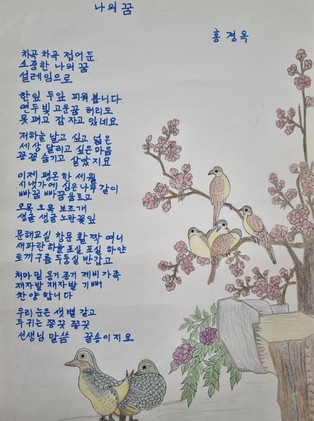 나의 꿈
홍경옥
차곡 차곡 접어둔
소중한 나의 꿈
설레임으로
한잎 두잎 피워 봅니다
연두빛 고운꿈 허리도
못 펴고 잠자고 있네요
저하늘 날고 싶고 넓은
세상 달리고 싶은마음
꽁꽁 숨기고 살았지요
이제 평온한 세월
시냇가에 심은 나무 같이
빠꼼 빠꼼 움트고
오목 오목 보조개
생글 생글 노란꽃잎
문해교실 창문 활짝 여니
새파란 하늘 포실 포실 하얀
토끼구름 두둥실 반갑고
처마 밑 옹기 종기 제비 가족
재자발 재자발 기뻐
찬양 합니다
우리 눈은 샛별 같고
두귀는 쫑긋 쫑긋
선생님 말씀 꿀송이 지요